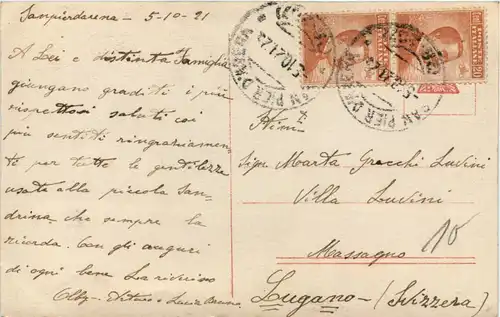 Sanpierdarena - 5-10-21
A Lei e distinta Famiglia
giungano graditi i più
rispettosi saluti coi
più sentiti ringraziamen
ti per tutte le gentilezze
usate alla piccola San
drina, che sempre la
ricorda. Con gli auguri
di ogni bene La riverisco
Obbg.
SAN PIER D'ARENA
5.10.21.22
Sigra Marta Grecchi Luvini
Villa Luvini
Massagno
10
Lugano - (Svizzera)